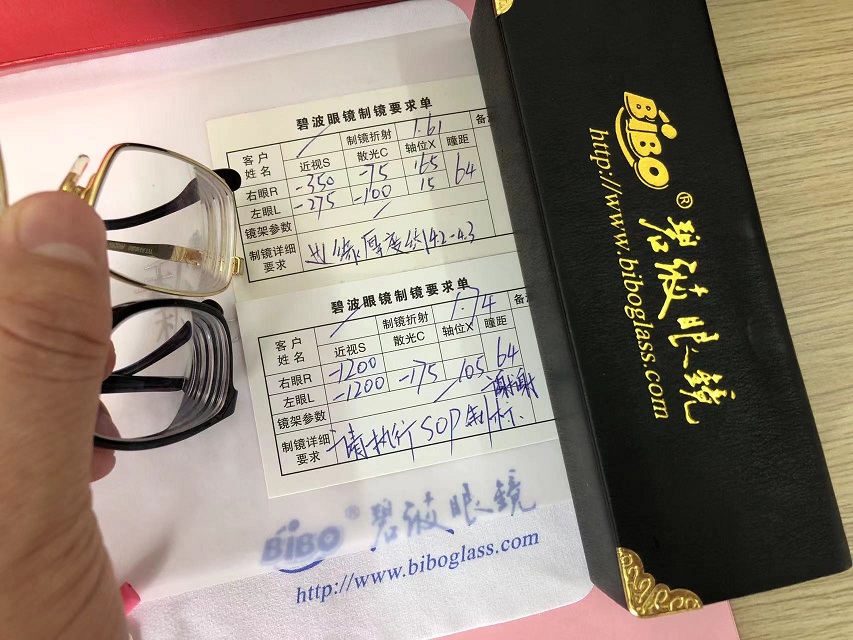 碧波眼镜制镜要求单
客户姓名 / 制镜折射 1.61 备
近视S 散光C 轴位X 瞳距
右眼R -350 -75 165 64
左眼L -275 -100 15
镜架参数 /
制镜详细要求 边缘厚度约4.2-4.3
碧波眼镜制镜要求单
客户姓名 / 制镜折射 1.74 备
近视S 散光C 轴位X 瞳距
右眼R -1200 64
左眼L -1200 -175 105
镜架参数 / 谢谢
制镜详细要求 请执行SOP制标.
BiBO® 碧波眼镜
http://www.biboglass.com
BiBO® 碧波眼镜
http://www.biboglass.com